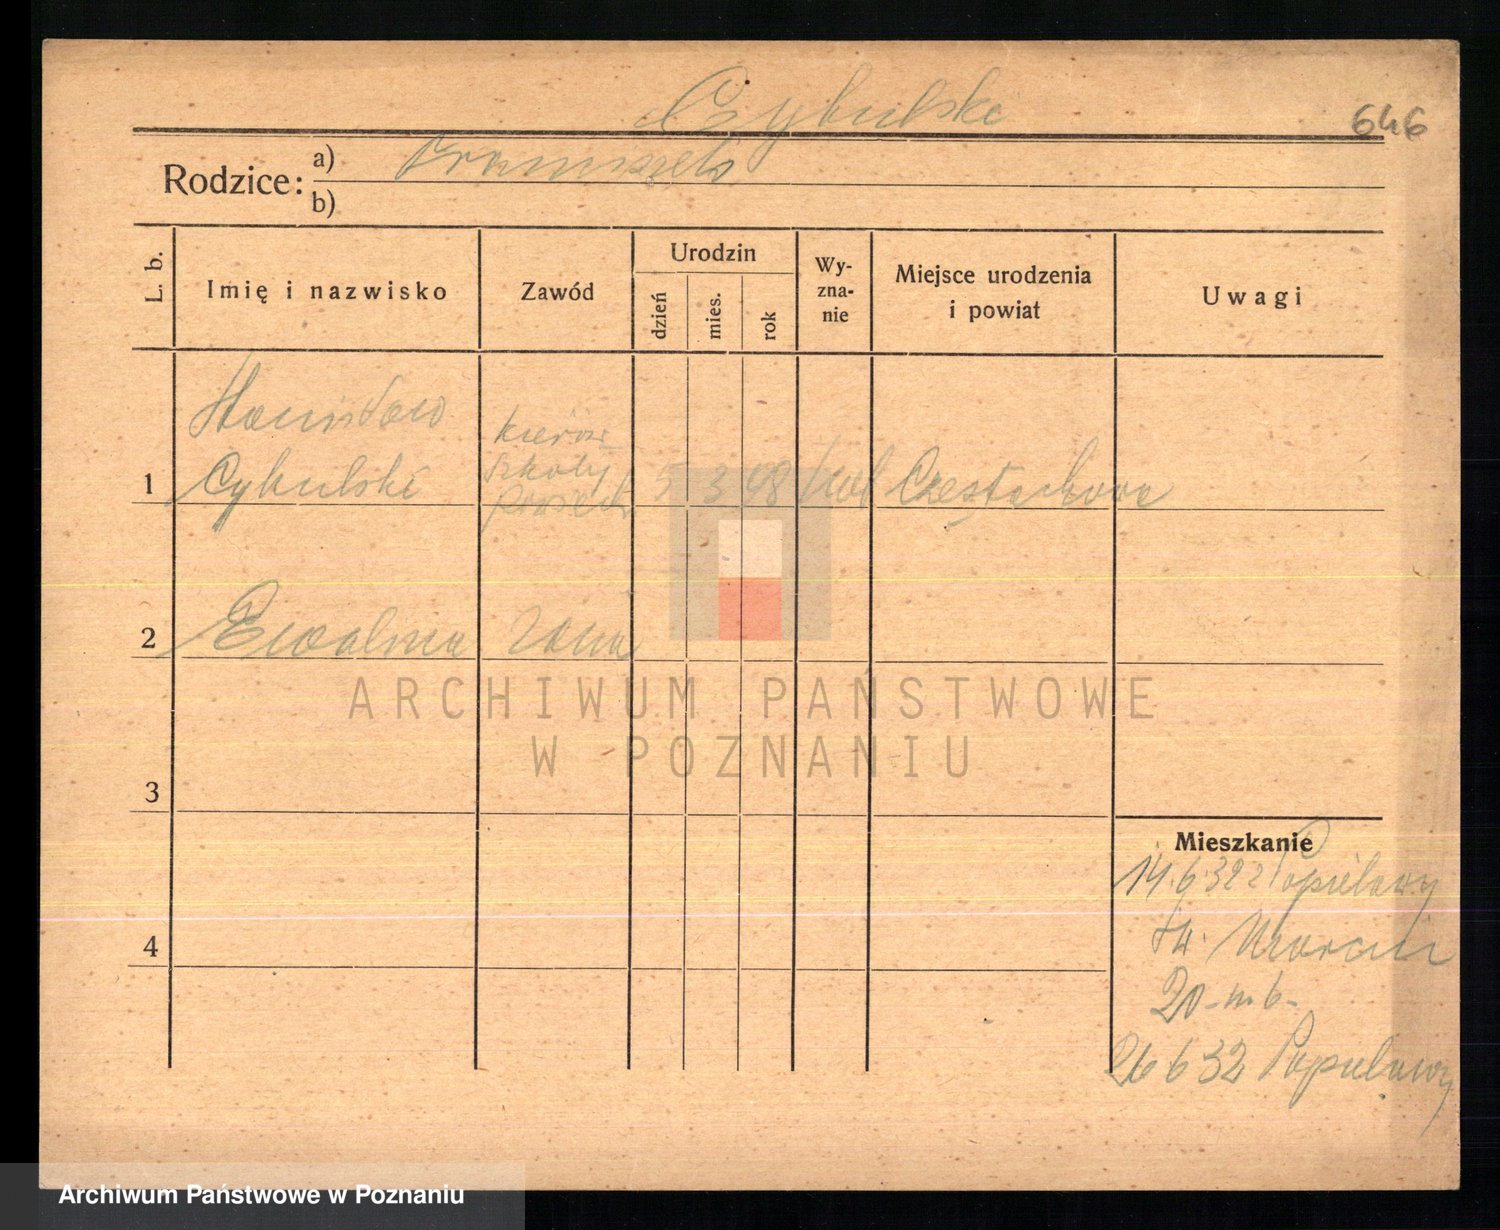 Cybulski
646
Rodzice: a) Franciszek
b)
L. b.
Imię i nazwisko
Zawód
Urodzin
dzień
mies.
rok
Wy-
zna-
nie
Miejsce urodzenia
i powiat
Uwagi
Stanisław
kierow
szkoły
1 Cybulski 5 3 98 kat Częstochowa
powsz
2 Ewalina żona
ARCHIWUM PAŃSTWOWE
W POZNANIU
3
Mieszkanie
14.6.32 z Popielawy
4 św. Marcin
20 - m 6 -
26 6 32 Popielawy
Archiwum Państwowe w Poznaniu